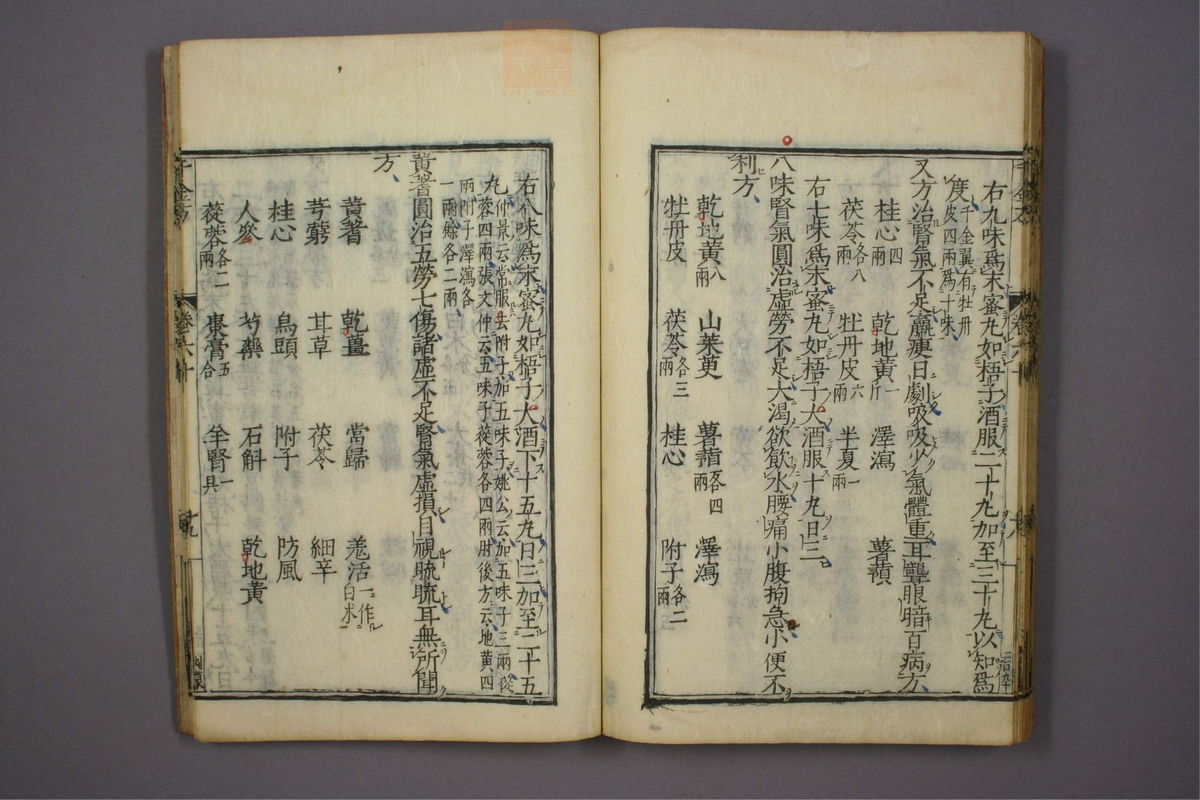 右九味爲末蜜丸如梧子酒服二十丸加至三十丸以知爲
度千金翼有牡丹
皮四兩爲十味
又方治腎氣不足羸瘦日劇吸吸少氣體重耳聾眼暗百病方
桂心四兩 乾地黄一斤 澤瀉 薯蕷
茯苓各八兩 牡丹皮六兩 半夏一兩
右七味爲末蜜丸如梧子大酒服十丸日三
八味腎氣圓治虛勞不足大渴欲飲水腰痛小腹拘急小便不
利方
乾地黄八兩 山茱萸 薯蕷各四兩 澤瀉
牡丹皮 茯苓各三兩 桂心 附子各二兩
右八味爲末蜜丸如梧子大酒下十五丸日三加至二十五
丸仲景云常服去附子加五味子姚公云加五味子三兩蓯
蓉四兩張文仲云五味子蓯蓉各四兩肘後方云地黄四
兩附子澤瀉各
一兩餘各二兩
黄蓍圓治五勞七傷諸虛不足腎氣虛損目視䀮䀮耳無所聞
方
黄蓍 乾薑 當歸 羗活一作白朮
芎藭 甘草 茯苓 細辛
桂心 烏頭 附子 防風
人參 芍藥 石斛 乾地黄
蓯蓉各二兩 棗膏五合 羊腎一具
千金方 卷六十 十九